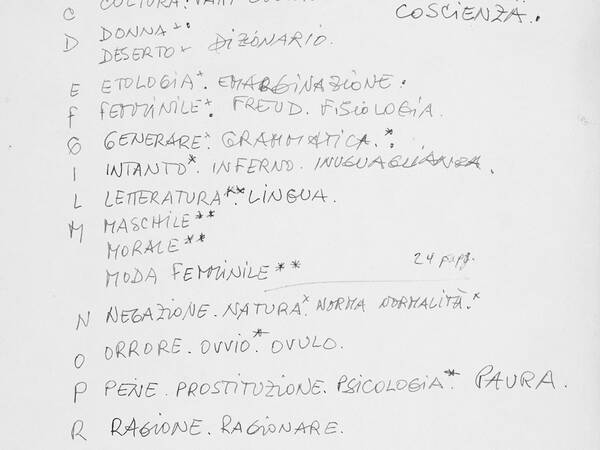 C CULTURA. VARI COSCIENZA.
D DONNA**.
DESERTO DIZIONARIO.
E ETOLOGIA*. EMARGINAZIONE.
F FEMMINILE*. FREUD. FISIOLOGIA.
G GENERARE*. GRAMMATICA.*.
I INTANTO*. INFERNO. INUGUAGLIANZA.
L LETTERATURA**. LINGUA.
M MASCHILE**
MORALE**
MODA FEMMINILE** 24 pagg.
N NEGAZIONE. NATURA*. NORMA NORMALITÀ.*
O ORRORE. OVVIO*. OVULO.
P PENE. PROSTITUZIONE. PSICOLOGIA*. PAURA.
R RAGIONE. RAGIONARE.